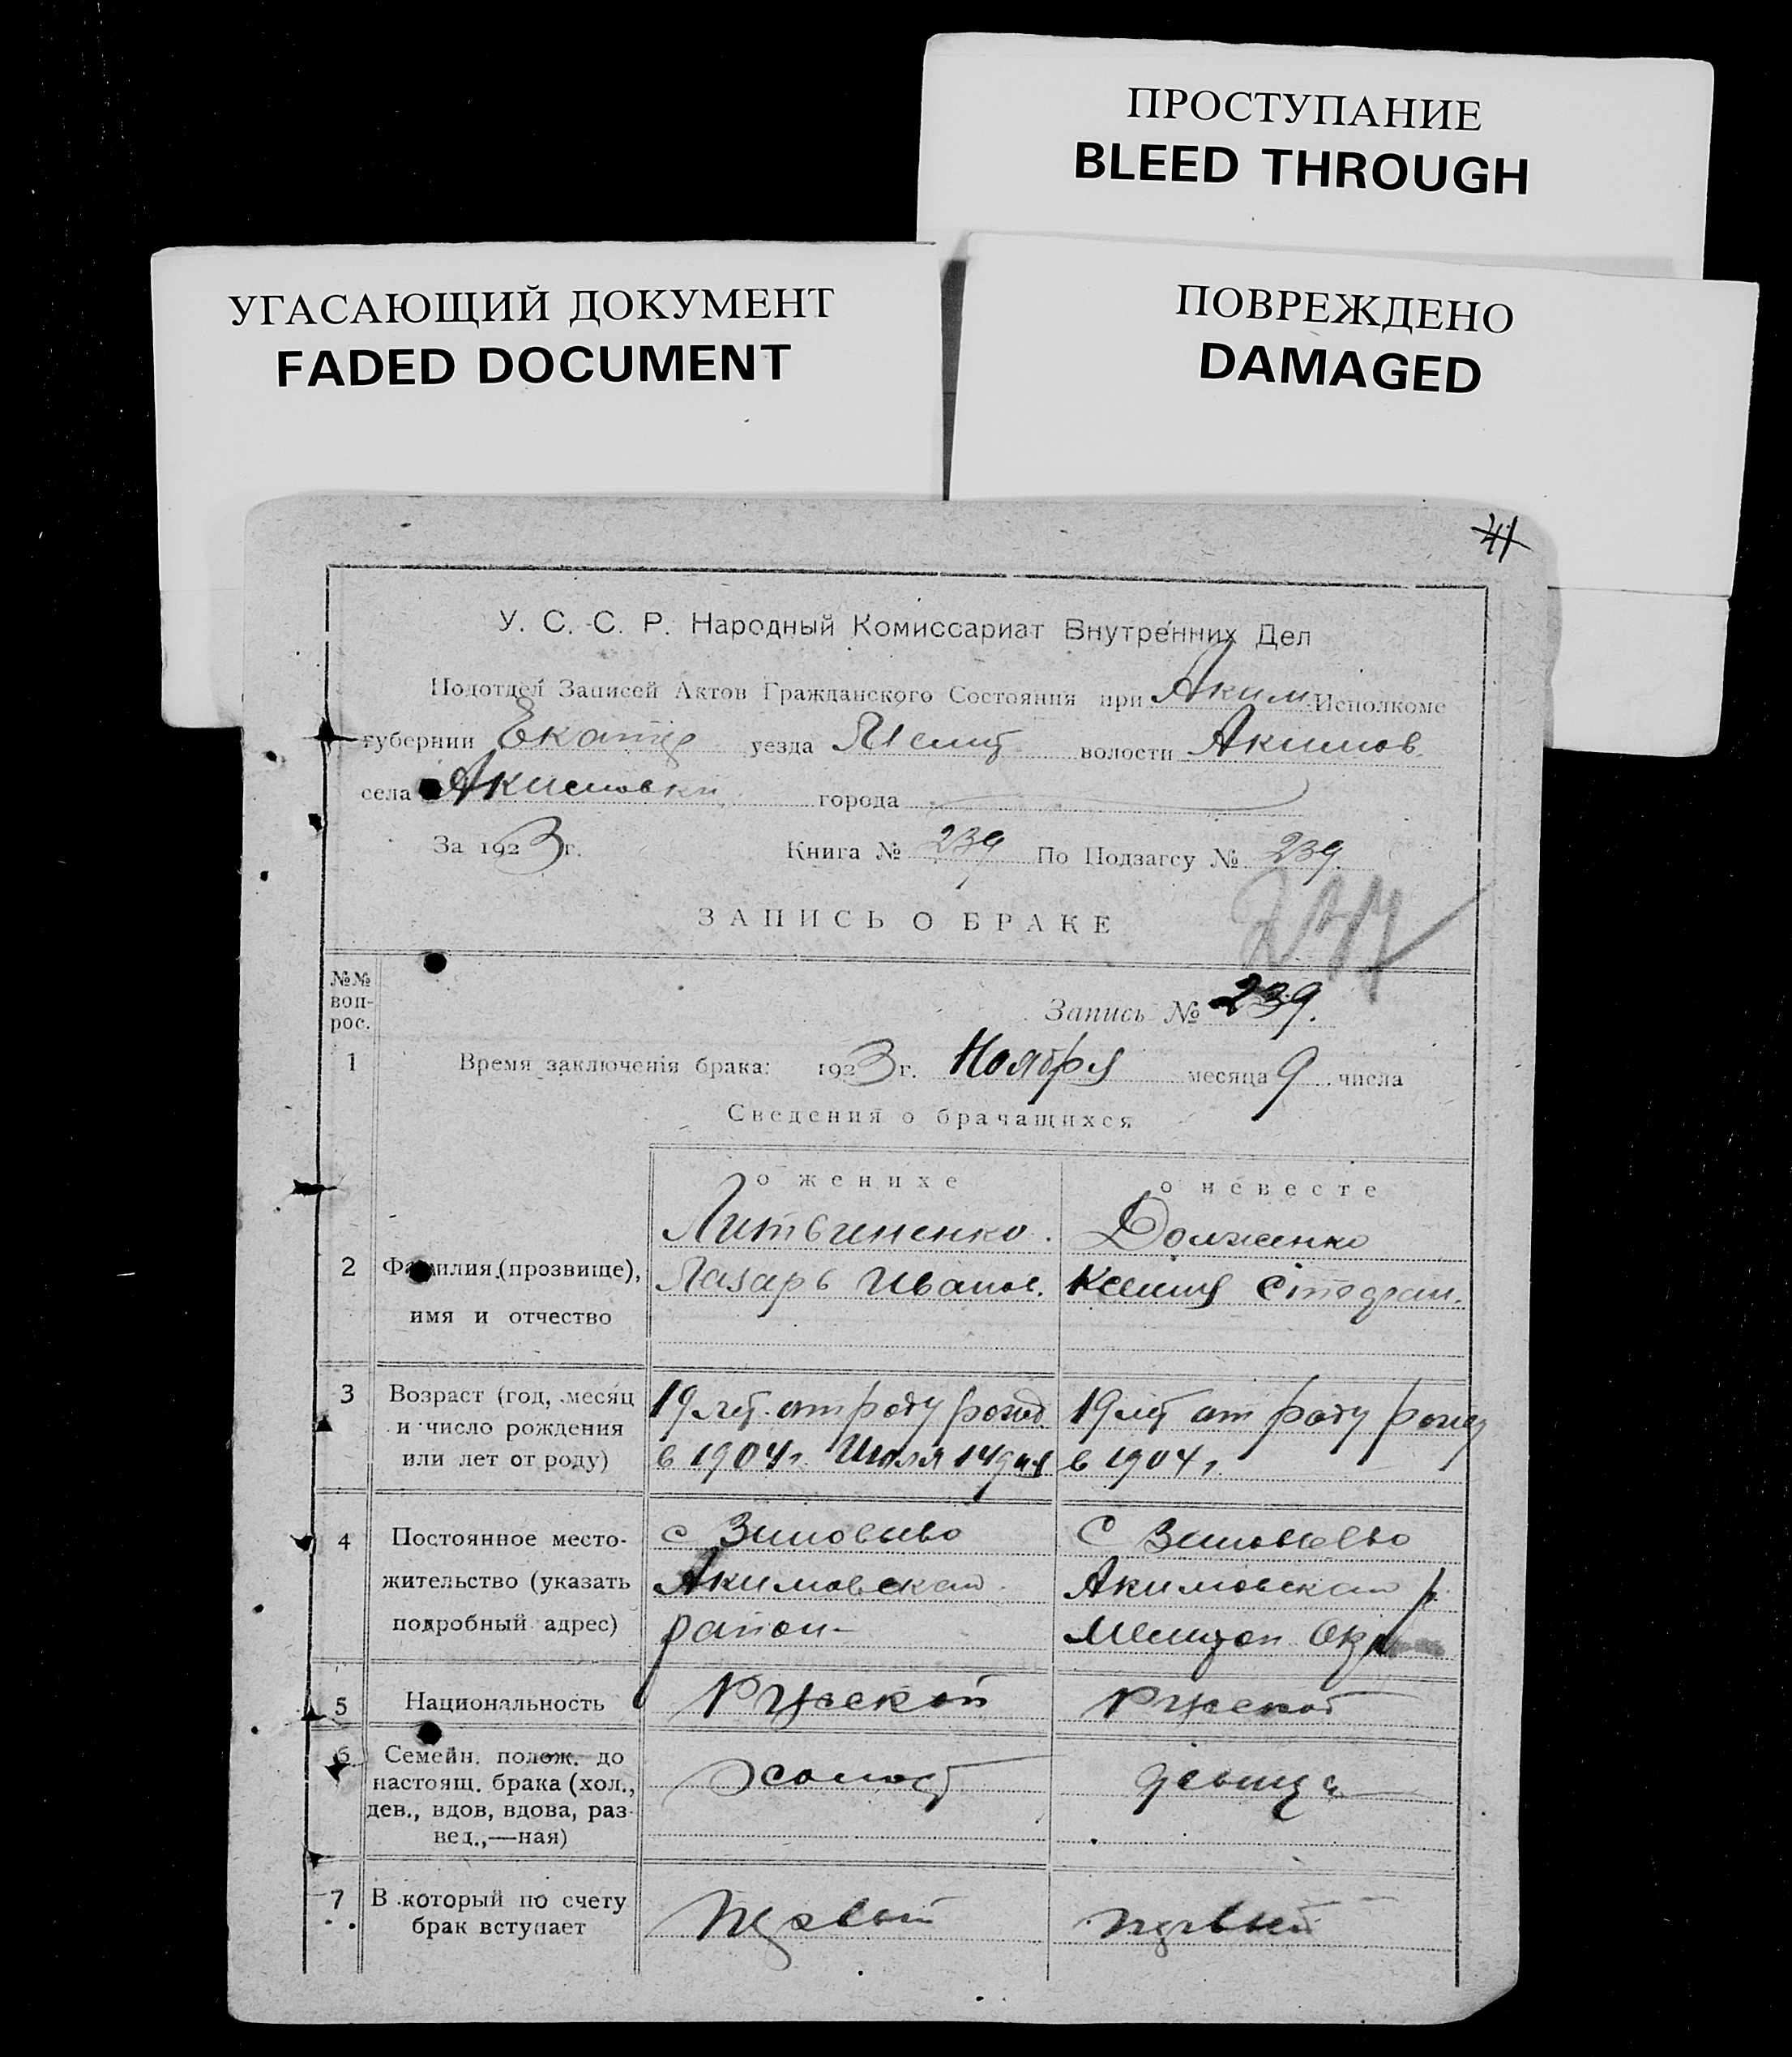 ПРОСТУПАНИЕ
BLEED THROUGH
УГАСАЮЩИЙ ДОКУМЕНТ
FADED DOCUMENT
ПОВРЕЖДЕНО
DAMAGED
41
У. С. С. Р. Народный Комиссариат Внутренних Дел
Подотдел Записей Актов Гражданского Состояния при Аким. Исполкоме
губернии Екатер уезда Мелит волости Акимов.
села Акимовки города
За 1923 г. Книга № 239 По Подзагсу № 239.
ЗАПИСЬ О БРАКЕ
№№ воп-рос.
Запись № 239.
1 Время заключенія брака: 1923 г. Ноября месяца 9 числа
Сведения о брачащихся
о женихе о невесте
Литвиненко. Долженко
2 Фамилия (прозвище), Лазарь Иванов. Ксения
имя и отчество
3 Возраст (год, месяц 19 лет от роду рожд. 19 лет от роду рожд
и число рождения
или лет от роду) в 1904 г. Июля 14 дня в 1904 г.
4 Постоянное место- с Зиновьево С Зиновьево
жительство (указать Акимовской Акимовской р.
подробный адрес) район Мелитоп Окр
5 Национальность Русской Русской
6 Семейн. полож. до
настоящ. брака (хол., холост девица
дев., вдов, вдова, раз-
вед.,—ная)
7 В который по счету первый первый
брак вступает